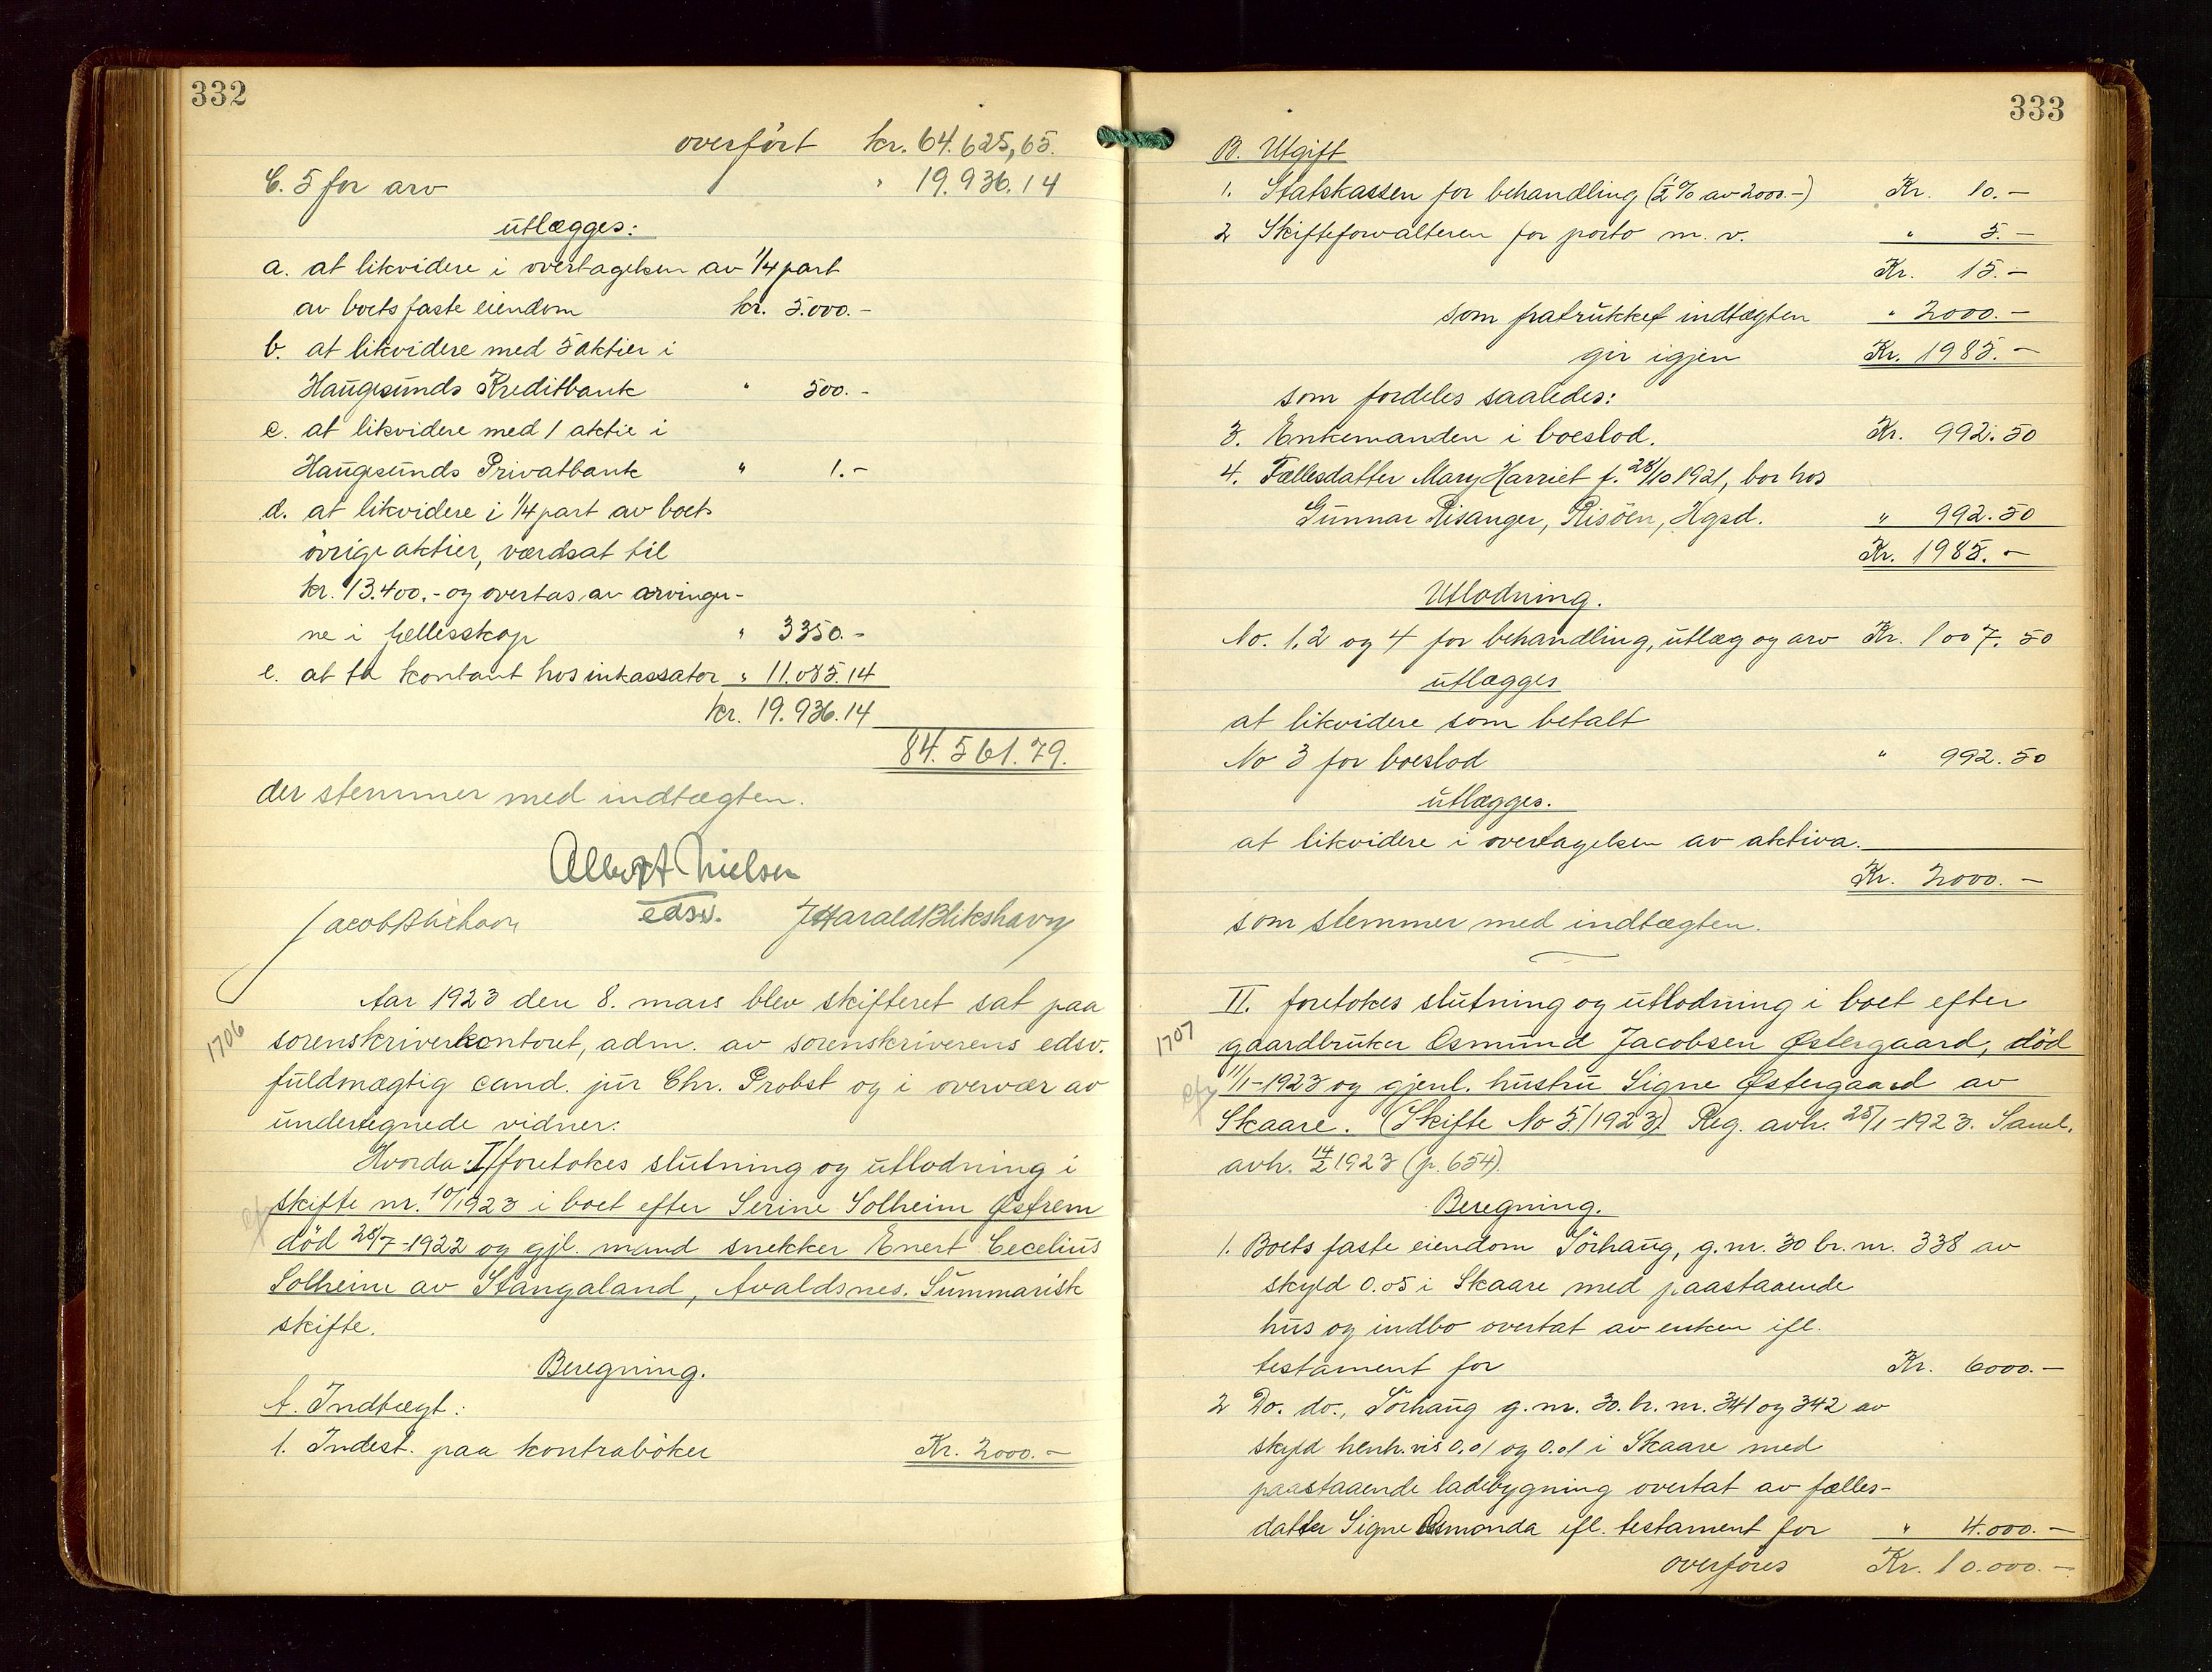 332
overført kr. 64.625,65.
C. 5 for arv " 19.936.14
utlægges:
a. at likvidere i overtagelsen av 1/4 part
av boets faste eiendom kr. 5.000.-
b. at likvidere med 5 aktier i
Haugesunds Kreditbank " 500.-
c. at likvidere med 1 aktie i
Haugesunds Privatbank " 1.-
d. at likvidere i 1/4 part av boets
övrige aktier, værdsat til
kr. 13.400.- og overtas av arvinger-
ne i fællesskap " 3350.-
e. at ta kontant hos inkassator " 11.085.14
kr. 19.936.14
84.561.79.
der stemmer med indtægten.
Albert Nielsen
edsv.
Jacob J Harald Blikshavn
Aar 1923 den 8. mars blev skifteret sat paa
1706
sorenskriverkontoret, adm. av sorenskriverens edsv.
fuldmægtig cand. jur Chr. Probst og i overvær av
undertegnede vidner:
Hvorda: I/ foretokes slutning og utlodning i
skifte nr. 10/1923 i boet efter Serine Solheim Østrem
död 28/7-1922 og gjl. mand snekker Enert Cecelius
Solheim av Stangaland, Avaldsnes. Summarisk
skifte.
Beregning.
A. Indtægt:
1. Indest. paa kontraböker Kr. 2000.-
333
B. Utgift
1. Statskassen for behandling (1/2 % av 2000.-) Kr. 10.-
2 Skifteforvalteren for porto m. v. " 5.-
Kr. 15.-
som fratrukket indtægten " 2000.-
gir igjen Kr. 1985.-
som fordeles saaledes:
3. Enkemanden i boeslod. Kr. 992.50
4. Fællesdatter Mary Harriet f. 28/10 1921, bor hos
Gunnar Risanger, Risöen, Hgsd. " 992.50
Kr. 1985.-
Utlodning.
No. 1, 2 og 4 for behandling, utlæg og arv Kr. 1007.50
utlægges
at likvidere som betalt
No 3 for boeslod " 992.50
utlægges.
at likvidere i overtagelsen av aktiva.
Kr. 2000.-
som stemmer med indtægten.
II. foretokes slutning og utlodning i boet efter
1707
gaardbruker Osmund Jacobsen Østergaard, död
11/1-1923 og gjenl. hustru Signe Østergaard av
Skaare. (Skifte No 5/1923) Reg. avh. 25/1-1923. Saml.
avh. 14/2 1923 (p. 654).
Beregning.
1. Boets faste eiendom Sörhaug, g.nr. 30 br. nr. 338 av
skyld 0.05 i Skaare med paastaaende
hus og indbo overtat av enken ifl.
testament for Kr. 6000.-
2 Do. do., Sörhaug g. nr. 30. br. nr. 341 og 342 av
skyld henh.vis 0.01 og 0.01 i Skaare med
paastaaende ladebygning overtat av fælles-
datter Signe Asmonda ifl. testament for " 4.000.-
overföres Kr. 10.000.-